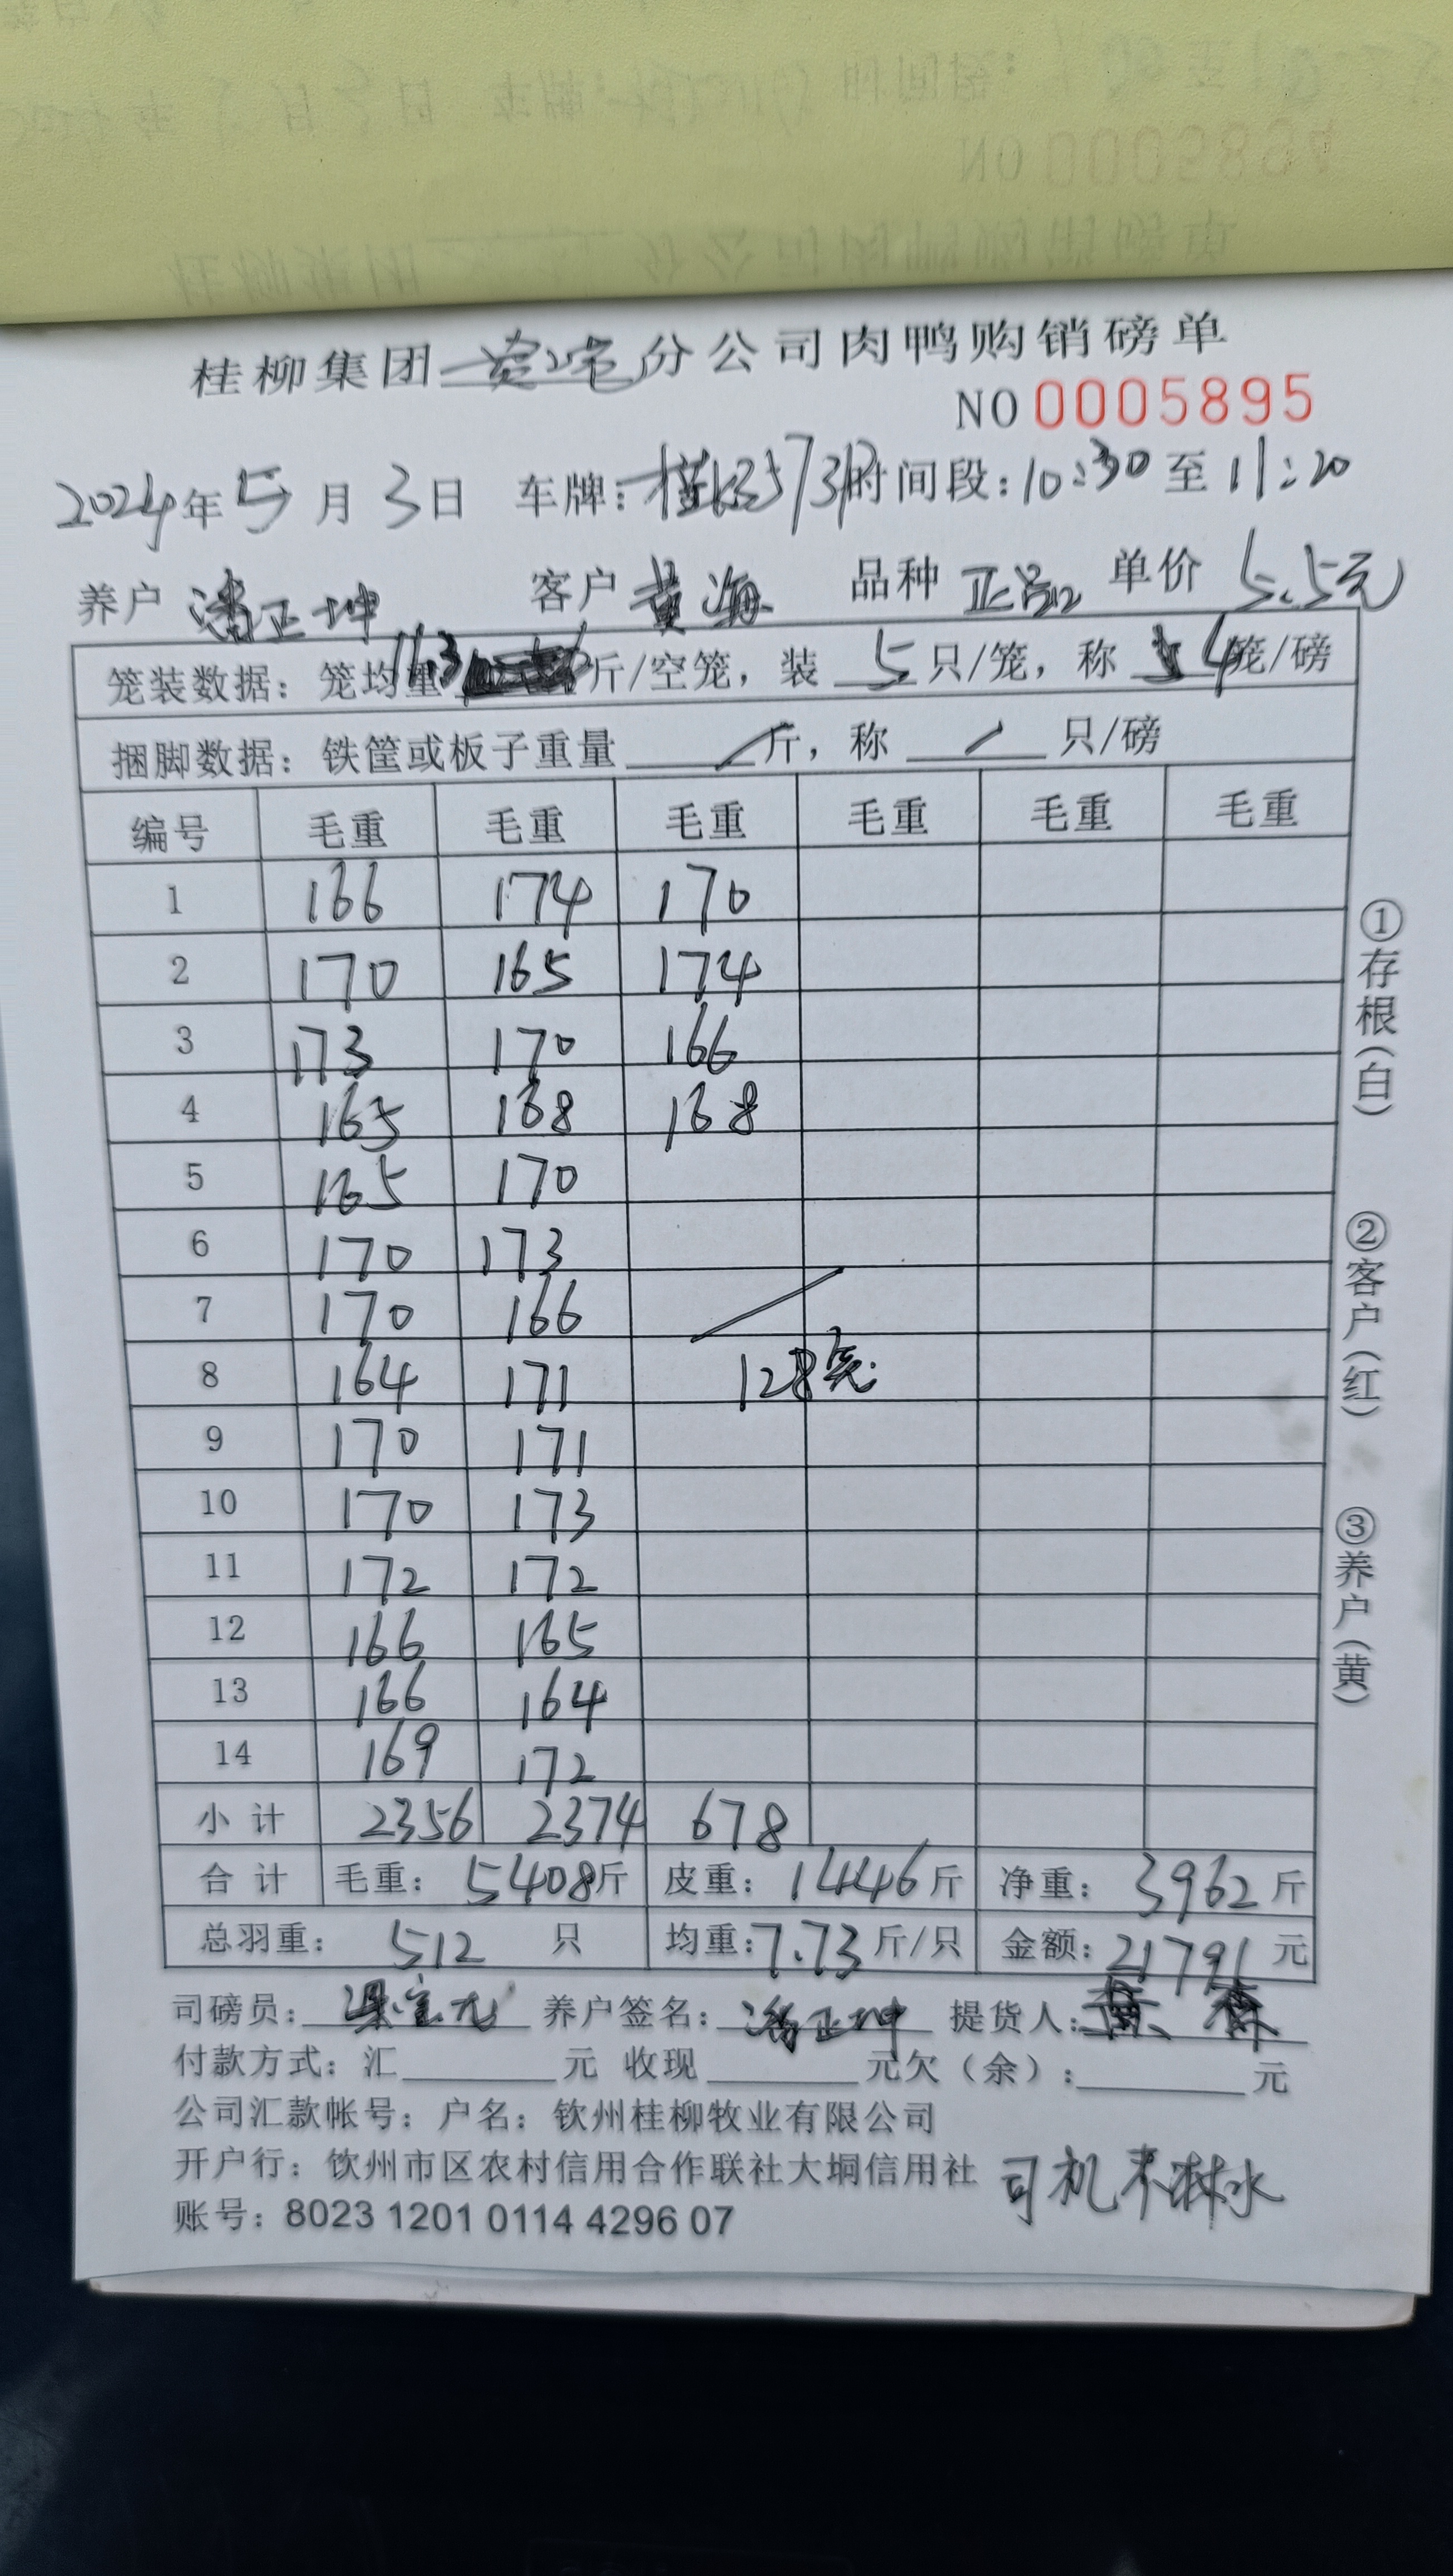 NO 0005894
桂柳集团 分公司肉鸭购销磅单
NO 0005895
2024年5月3日 车牌: 时间段:10:30至11:20
养户 潘正坤 客户 黄海 品种 正品 单价 5.5元
笼装数据: 笼均重 11.3 斤/空笼, 装 5 只/笼, 称 4 笼/磅
捆脚数据: 铁筐或板子重量 / 斤, 称 / 只/磅
编号 毛重 毛重 毛重 毛重 毛重 毛重
1 166 174 170
2 170 165 174
3 173 170 166
4 165 168 168
5 165 170
6 170 173
7 170 166
8 164 171 128笼
9 170 171
10 170 173
11 172 172
12 166 165
13 166 164
14 169 172
小计 2356 2374 678
合计 毛重: 5408斤 皮重: 1446斤 净重: 3962斤
总羽重: 512 只 均重:7.73斤/只 金额:21791元
司磅员: 养户签名: 潘正坤 提货人:
付款方式: 汇 元 收现 元欠(余): 元
公司汇款帐号: 户名: 钦州桂柳牧业有限公司
开户行: 钦州市区农村信用合作联社大垌信用社
司机未淋水
账号: 8023 1201 0114 4296 07
①存根(白)
②客户(红)
③养户(黄)